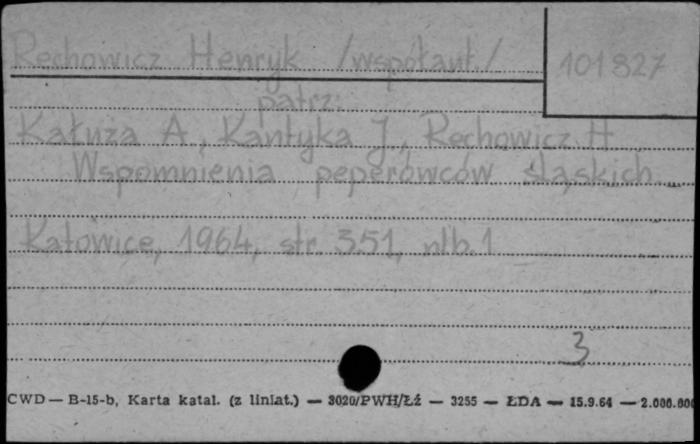 Rechowicz Henryk /współaut./ 101827
patrz:
Kałuża A., Kantyka J., Rechowicz H
Wspomnienia peperowców śląskich.
Katowice, 1964, str. 351, nlb. 1
3
CWD — B-15-b, Karta katal. (z liniat.) — 3020/PWH/Łź — 3255 — ŁDA — 15.9.64 — 2.000.000